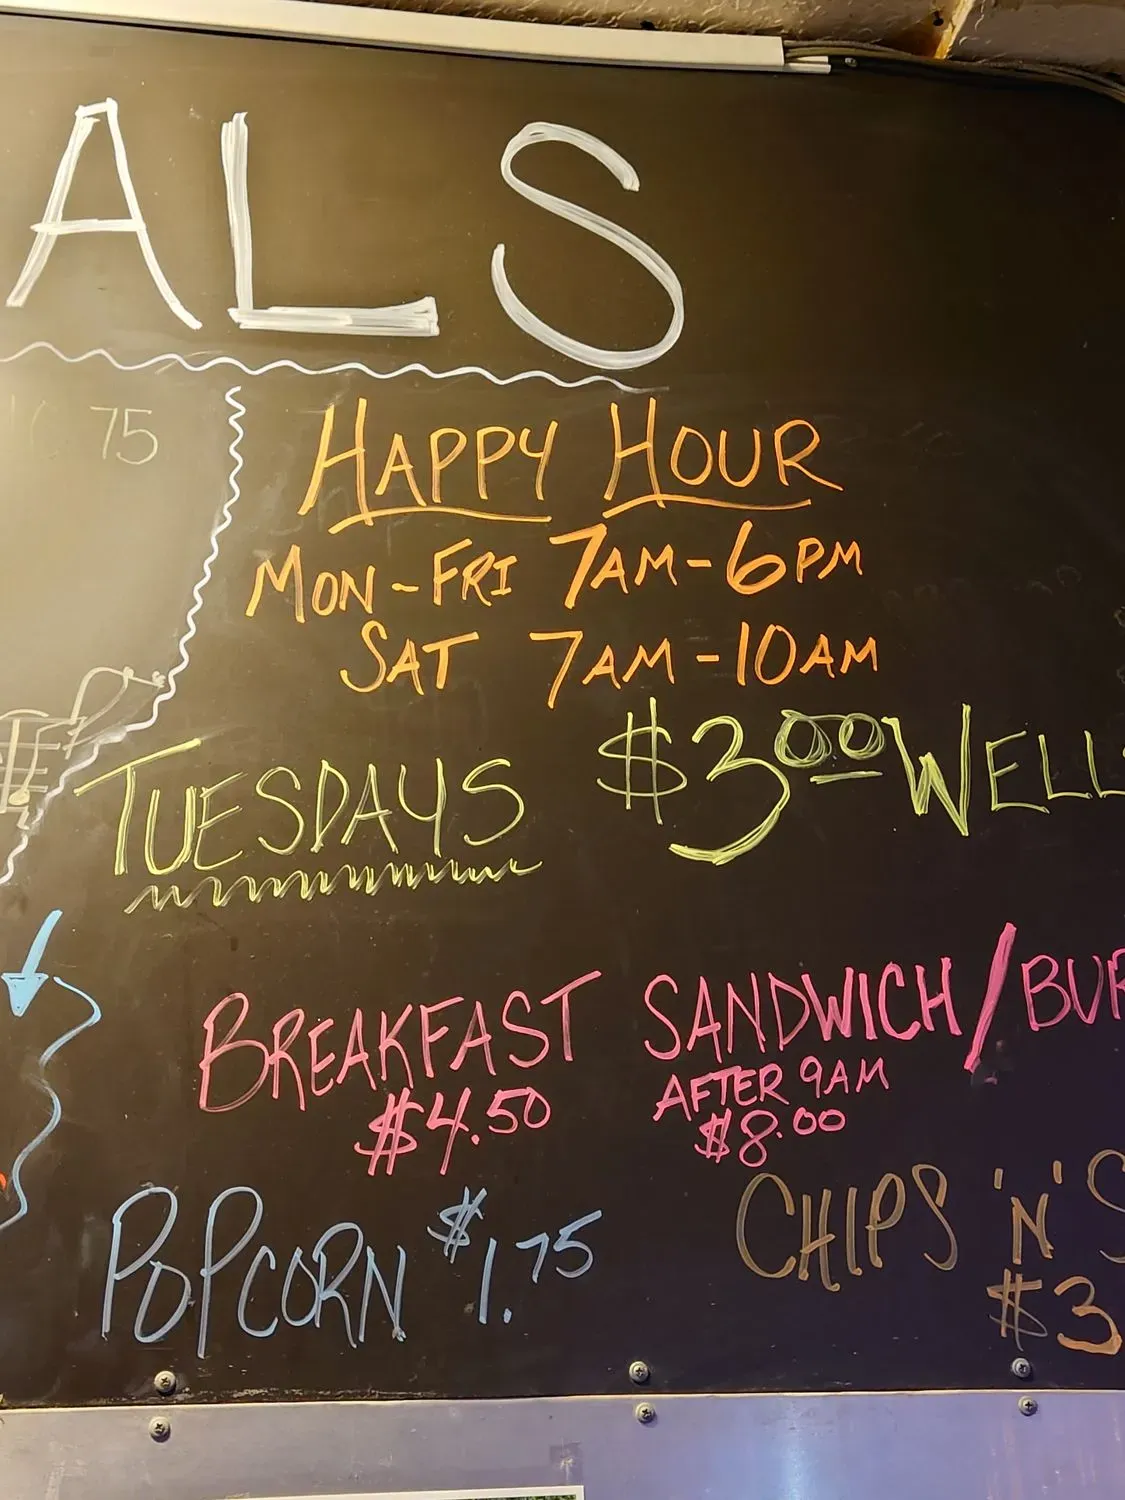 ALS
75
HAPPY HOUR
MON-FRI 7AM-6PM
SAT 7AM-10AM
TUESDAYS $3.00 WELLS
BREAKFAST SANDWICH/BUR
$4.50
AFTER 9AM
$8.00
POPCORN $1.75
CHIPS 'N' S
$3